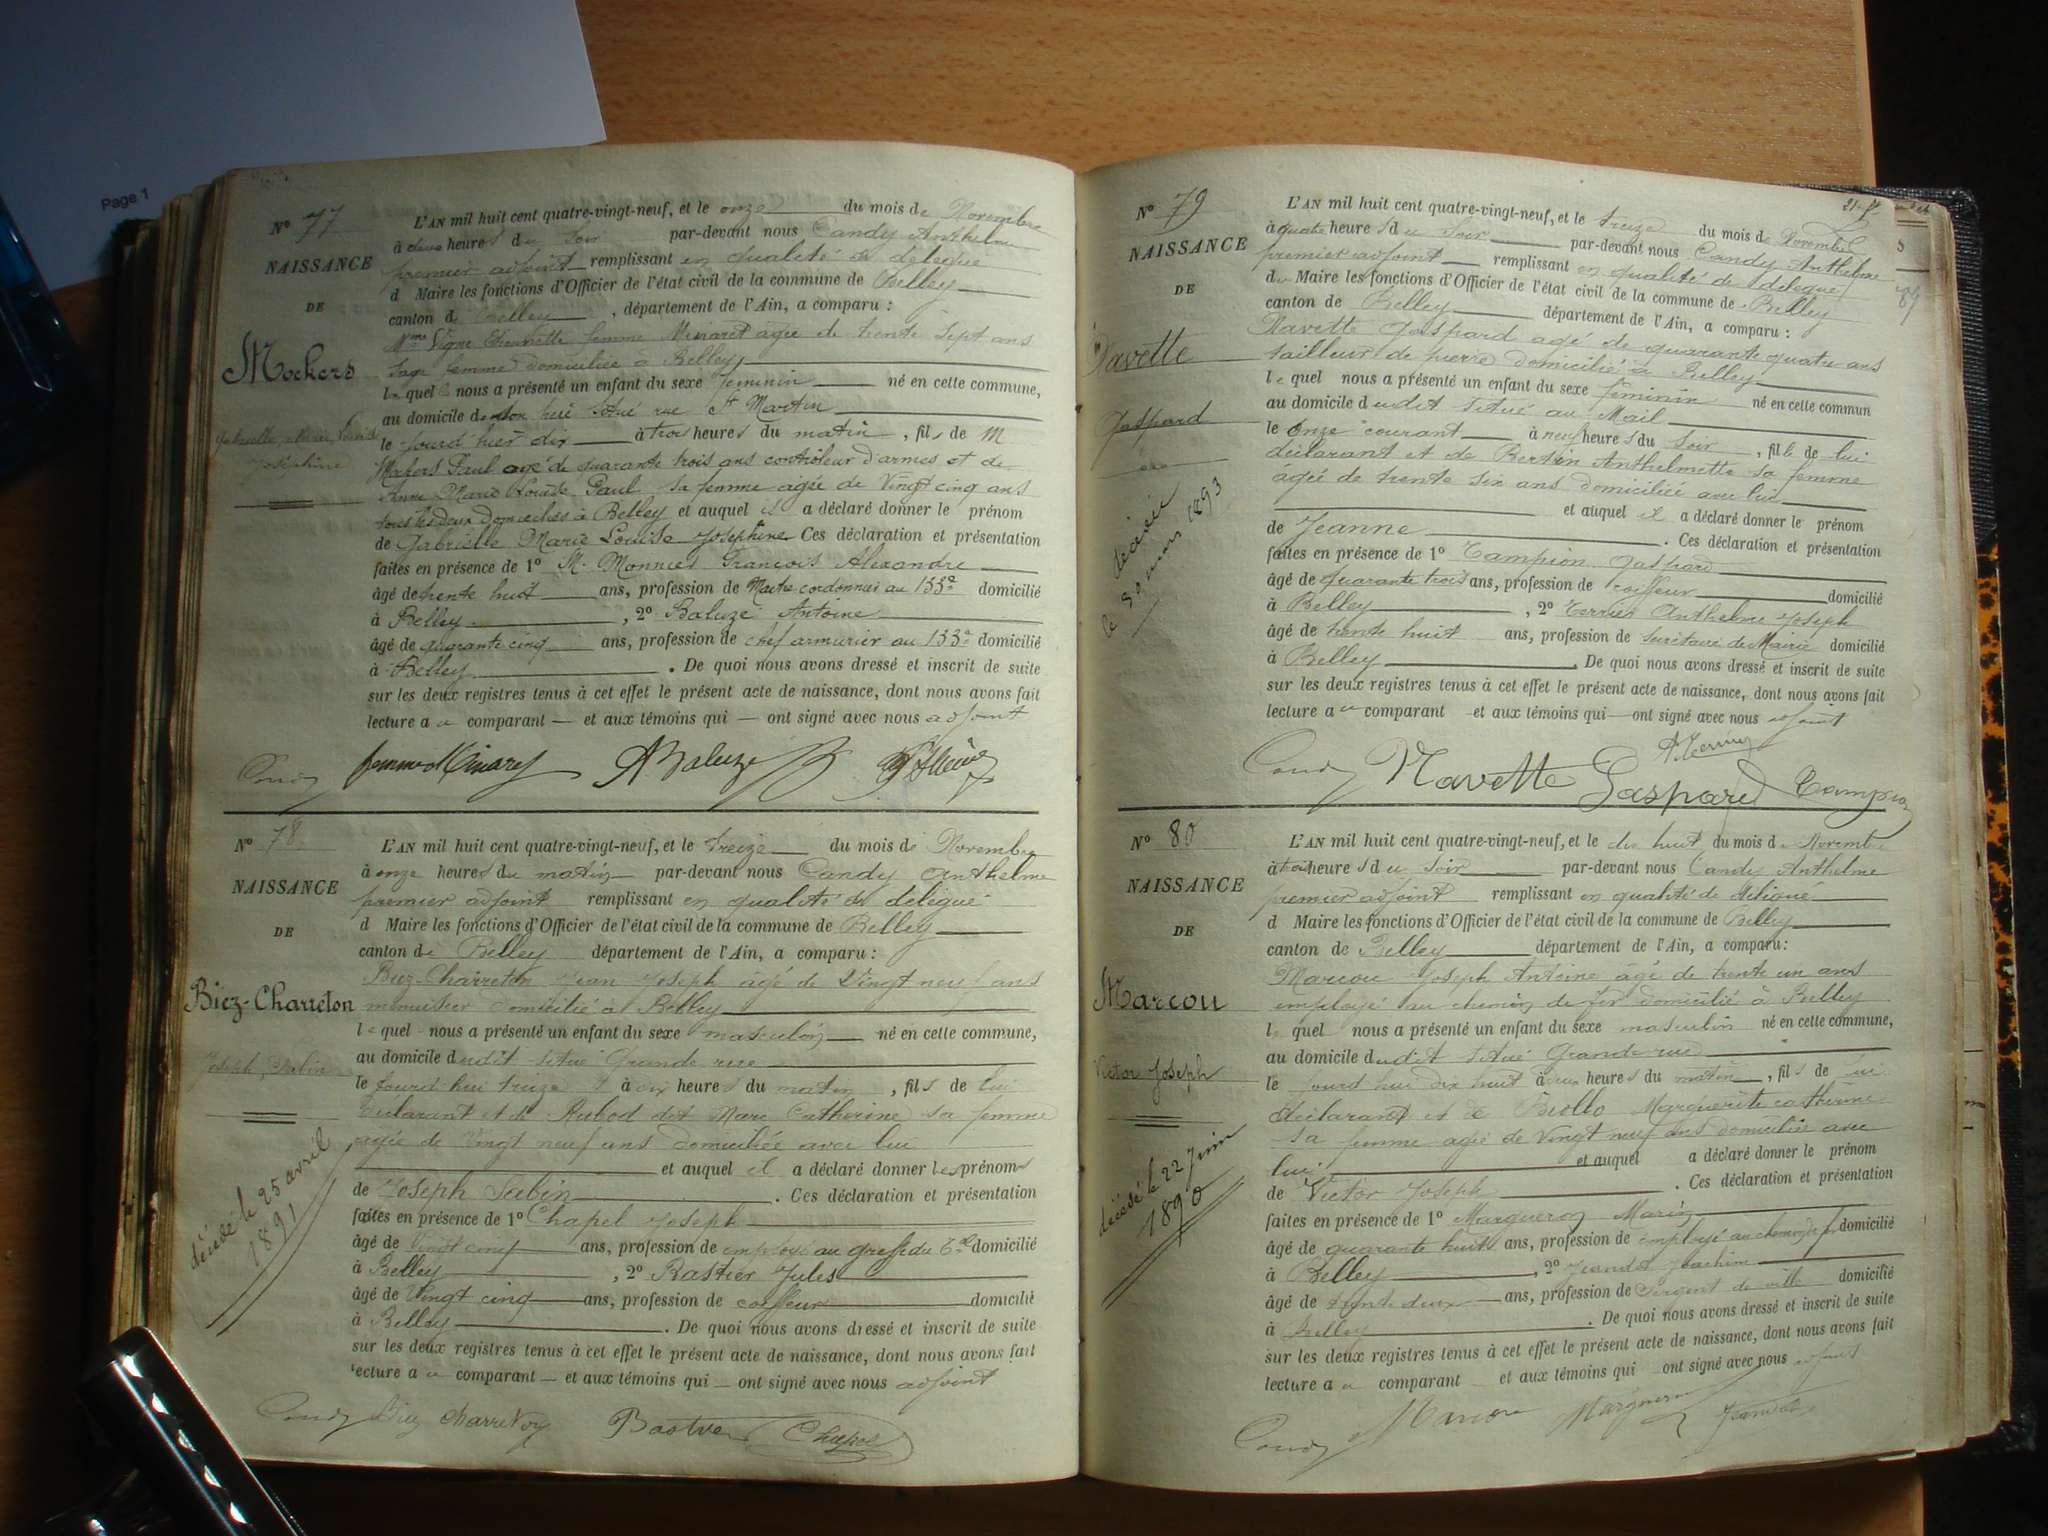 Page 1
N° 77
NAISSANCE
DE
Mockers
Gabrielle, Marie Louise
Joséphine
L'AN mil huit cent quatre-vingt-neuf, et le onze du mois de Novembre
à deux heures du soir par-devant nous Candy Anthelme
premier adjoint remplissant en qualité de délégué
d Maire les fonctions d'Officier de l'état civil de la commune de Belley
canton de Belley, département de l'Ain, a comparu :
Mme Vigne Etiennette femme Minaret agée de trente sept ans
sage femme domiciliée à Belley
l quel nous a présenté un enfant du sexe féminin né en cette commune,
au domicile de son père situé rue St Martin
le jourd'hier dix à trois heures du matin, fils de M
Mokers Paul agé de quarante trois ans contrôleur d'armes et de
Anne Marie Louise Paul sa femme agée de vingt cinq ans
tous les deux domiciliés à Belley et auquel il a déclaré donner le prénom
de Gabrielle Marie Louise Josephine Ces déclaration et présentation
faites en présence de 1° M. Monnier François Alexandre
âgé de trente huit ans, profession de Maitre cordonnier au 133e domicilié
à Belley, 2° Baluze Antoine
âgé de quarante cinq ans, profession de chef armurier au 133e domicilié
à Belley. De quoi nous avons dressé et inscrit de suite
sur les deux registres tenus à cet effet le présent acte de naissance, dont nous avons fait
lecture a u comparant — et aux témoins qui — ont signé avec nous adjoint
Candy femme Minaret A Baluze
N° 78
NAISSANCE
DE
Biez-Charreton
Joseph, Sabin
décédé le 25 avril
1891
L'AN mil huit cent quatre-vingt-neuf, et le treize du mois de Novembre
à onze heures du matin par-devant nous Candy Anthelme
premier adjoint remplissant en qualité de délégué
d Maire les fonctions d'Officier de l'état civil de la commune de Belley
canton de Belley département de l'Ain, a comparu :
Biez-Charreton Jean Joseph agé de vingt neuf ans
menuisier domicilié à Belley
le quel nous a présenté un enfant du sexe masculin né en cette commune,
au domicile dudit situé Grande rue
le jourd'hui treize à six heures du matin, fils de lui
déclarant et de Aubod dit Marc Catherine, sa femme
agée de vingt neuf ans domiciliée avec lui
et auquel il a déclaré donner les prénoms
de Joseph Sabin. Ces déclaration et présentation
faites en présence de 1° Chapel Joseph
âgé de vingt cinq ans, profession de employé au greffe du Tal domicilié
à Belley, 2° Bastier Jules
âgé de vingt cinq ans, profession de coiffeur domicilié
à Belley. De quoi nous avons dressé et inscrit de suite
sur les deux registres tenus à cet effet le présent acte de naissance, dont nous avons fait
lecture a u comparant — et aux témoins qui — ont signé avec nous adjoint
Candy Biez Charreton Chapel
N° 79
NAISSANCE
DE
Navette
Gaspard
décédée
le 30 mars 1893
L'AN mil huit cent quatre-vingt-neuf, et le treize du mois de Novembre
à quatre heures du soir par-devant nous Candy Anthelme
premier adjoint remplissant en qualité de délégué
du Maire les fonctions d'Officier de l'état civil de la commune de Belley
canton de Belley département de l'Ain, a comparu :
Navette Gaspard agé de quarante quatre ans
tailleur de pierre domicilié à Belley
le quel nous a présenté un enfant du sexe féminin né en cette commun
au domicile dudit situé au Mail
le onze courant à neuf heures du soir, fille de lui
déclarant et de Bertin Anthelmette sa femme
âgée de trente six ans domiciliée avec lui
et auquel il a déclaré donner le prénom
de Jeanne. Ces déclaration et présentation
faites en présence de 1° Campion Gaspard
âgé de quarante trois ans, profession de coiffeur domicilié
à Belley, 2° Terrier Anthelme Joseph
âgé de trente huit ans, profession de Secrétaire de Mairie domicilié
à Belley. De quoi nous avons dressé et inscrit de suite
sur les deux registres tenus à cet effet le présent acte de naissance, dont nous avons fait
lecture a u comparant et aux témoins qui — ont signé avec nous adjoint
A. Terrier
Candy Navette Gaspard Campion
N° 80
NAISSANCE
DE
Marcou
Victor Joseph
décédé le 22 Juin
1890
L'AN mil huit cent quatre-vingt-neuf, et le dix huit du mois de Novembre
à trois heures du soir par-devant nous Candy Anthelme
premier adjoint remplissant en qualité de délégué
d Maire les fonctions d'Officier de l'état civil de la commune de Belley
canton de Belley département de l'Ain, a comparu :
Marcou Joseph Antoine âgé de trente un ans
employé au chemin de fer domicilié à Belley
le quel nous a présenté un enfant du sexe masculin né en cette commune,
au domicile dudit situé Grande rue
le jourd'hui dix huit à deux heures du matin, fils de lui
déclarant et de Biollo Marguerite Catherine
sa femme agée de vingt neuf ans domiciliée avec
lui et auquel a déclaré donner le prénom
de Victor Joseph. Ces déclaration et présentation
faites en présence de 1° Margueron Marin
âgé de quarante huit ans, profession de employé au chemin de fer domicilié
à Belley, 2° Jeandet Joachim
âgé de trente deux ans, profession de Sergent de ville domicilié
à Belley. De quoi nous avons dressé et inscrit de suite
sur les deux registres tenus à cet effet le présent acte de naissance, dont nous avons fait
lecture a u comparant et aux témoins qui — ont signé avec nous adjoint
Candy Marcou Margueron Jeandet